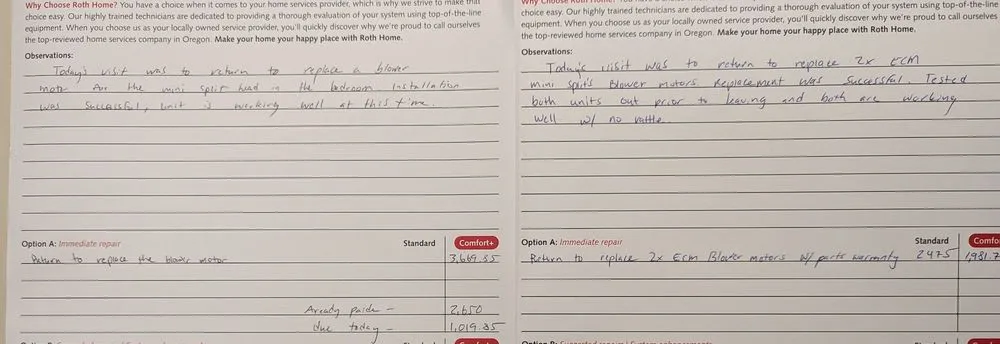 Why Choose Roth Home? You have a choice when it comes to your home services provider, which is why we strive to make that
choice easy. Our highly trained technicians are dedicated to providing a thorough evaluation of your system using top-of-the-line
equipment. When you choose us as your locally owned service provider, you'll quickly discover why we're proud to call ourselves
the top-reviewed home services company in Oregon. Make your home your happy place with Roth Home.
Observations:
Today's visit was to return to replace a blower
motor for the mini split head in the bedroom Installation
was successful, unit is working well at this time.
Option A: Immediate repair Standard Comfort+
Return to replace the blower motor 3,669.85
Aready paide - 2,650
due today - 1,019.85
Why Choose Roth Home?
choice easy. Our highly trained technicians are dedicated to providing a thorough evaluation of your system using top-of-the-line
equipment. When you choose us as your locally owned service provider, you'll quickly discover why we're proud to call ourselves
the top-reviewed home services company in Oregon. Make your home your happy place with Roth Home.
Observations:
Today's visit was to return to replace 2x ECM
mini splits Blower motors. Replacement was successful. Tested
both units out prior to leaving and both are working
well w/ no rattle.
Option A: Immediate repair Standard Comfo
Return to replace 2x Ecm Blower motors w/ parts warranty 2475 1,981.7